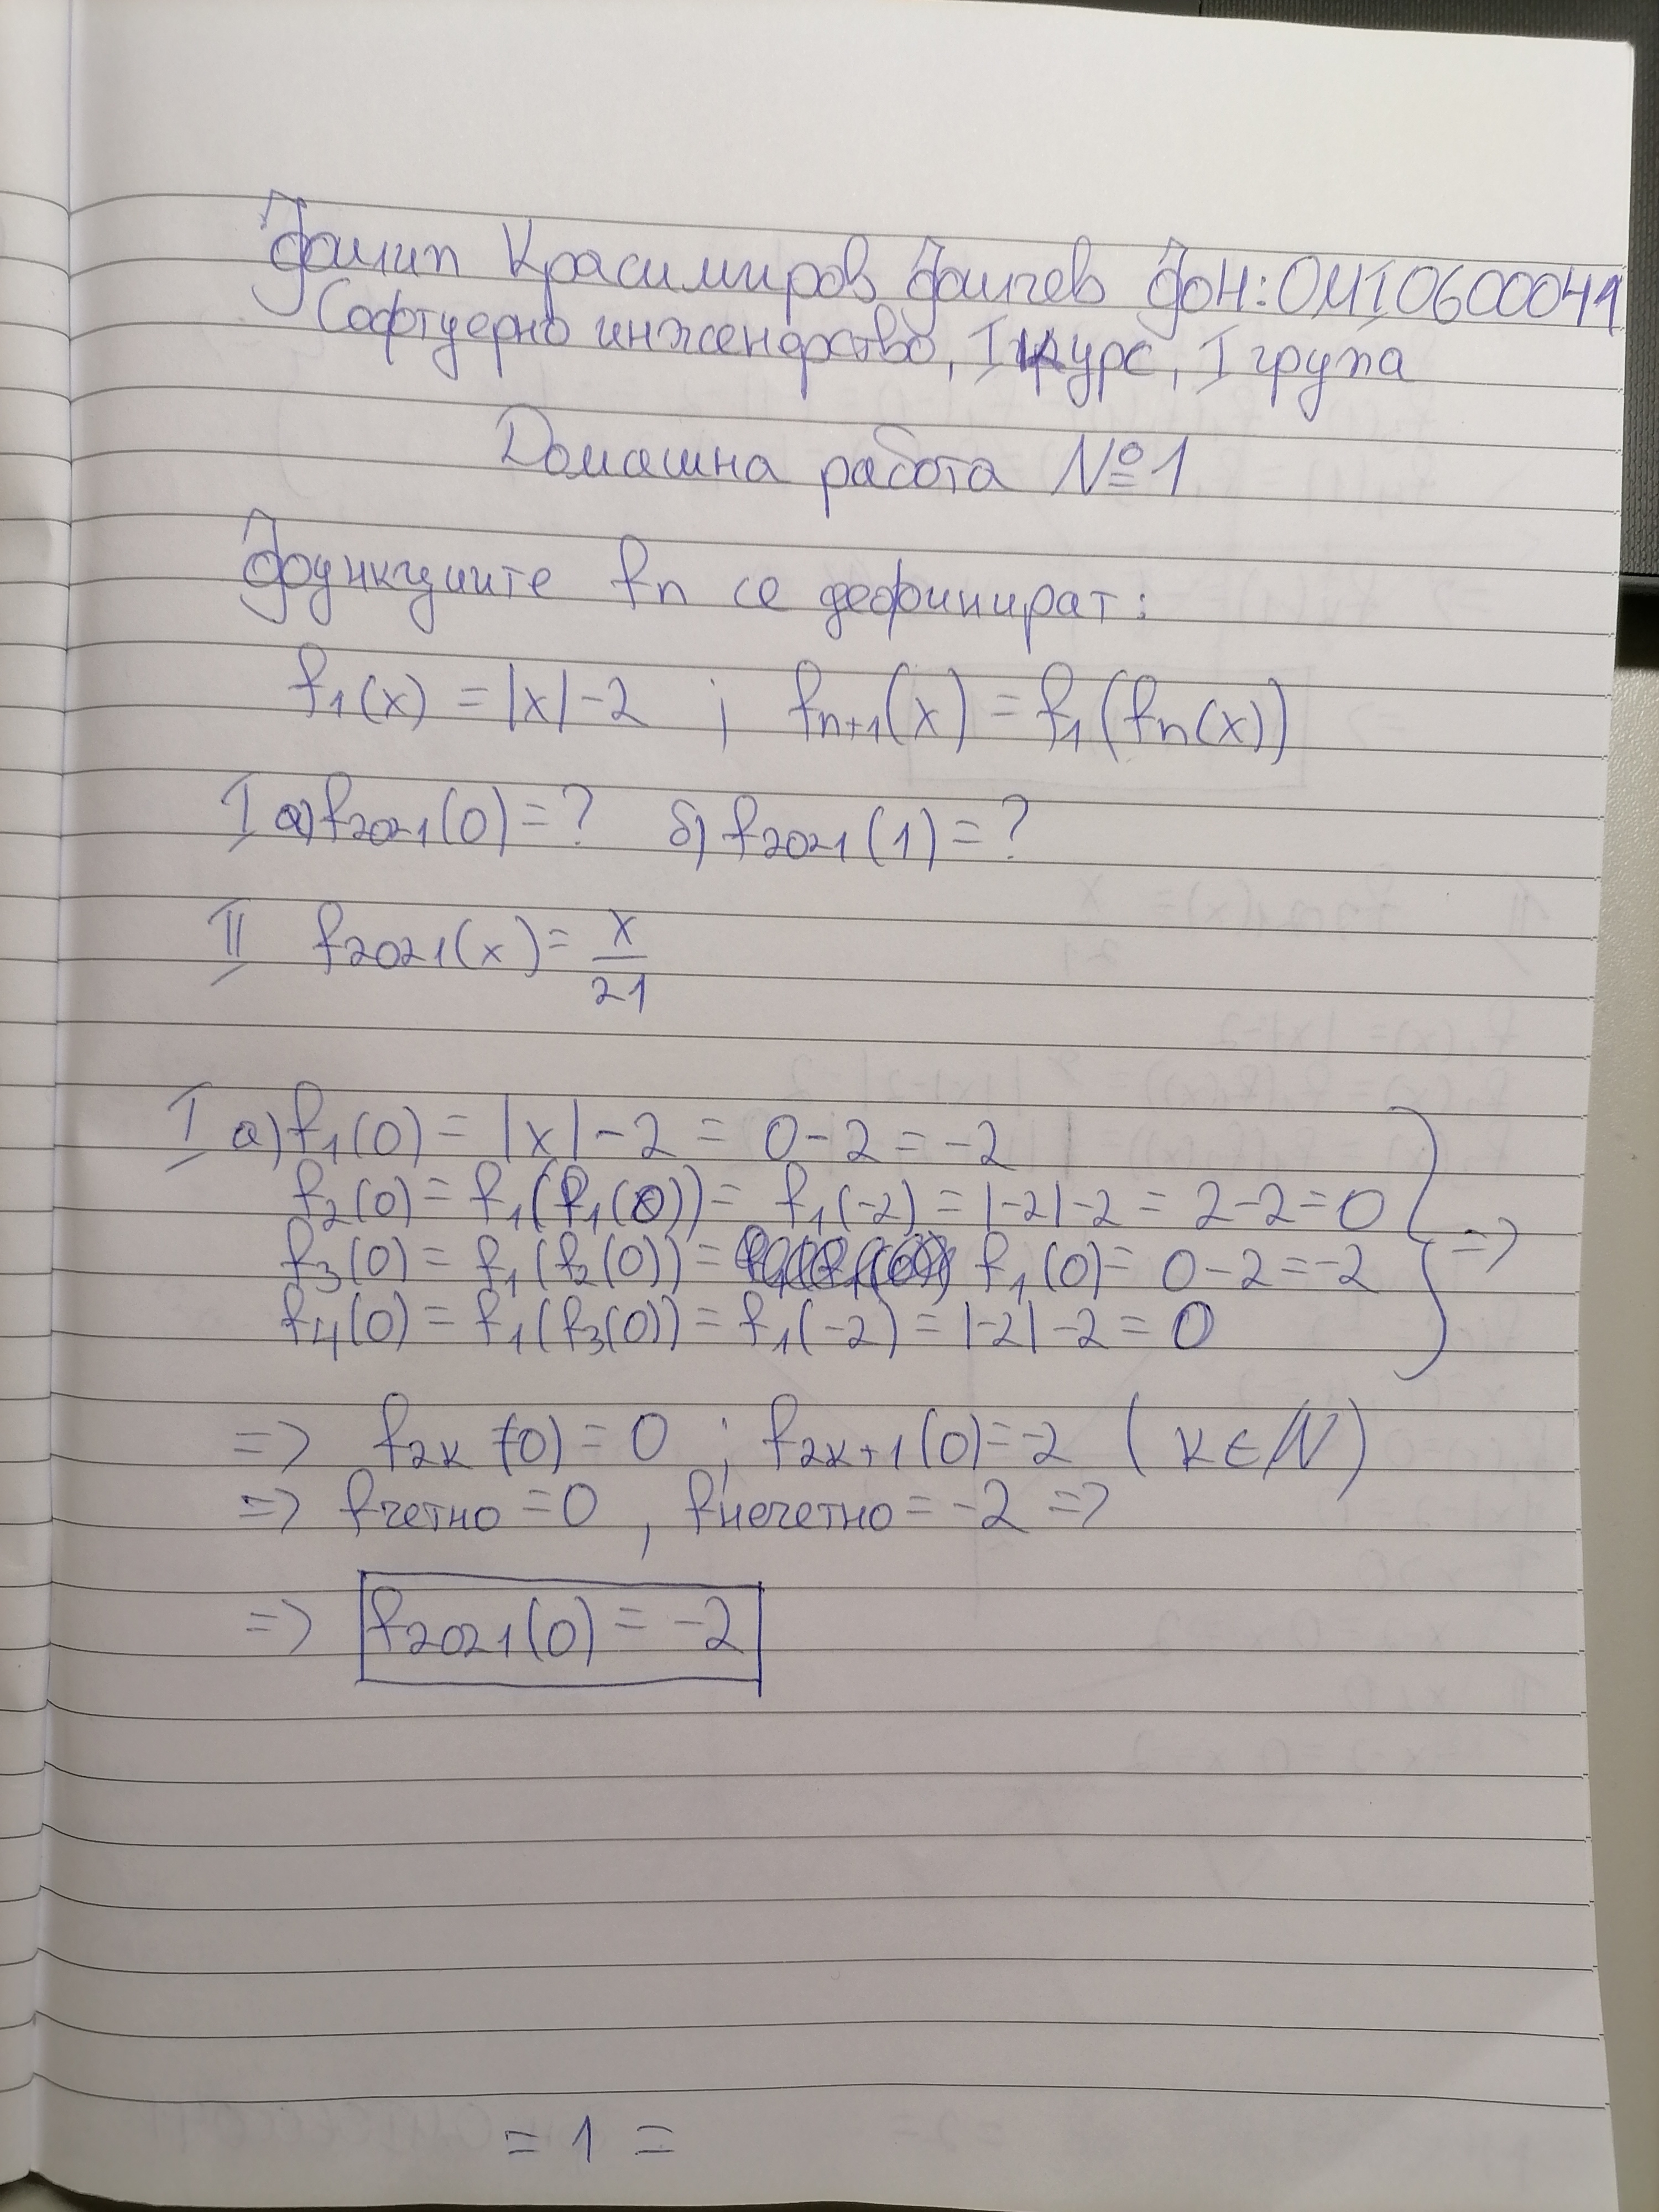 Филип Красимиров Филчев ФН: 0MI0600041
Софтуерно инженерство, I курс, I група
Домашна работа №1
Функциите fn се дефинират:
f1(x) = |x| - 2 ; fn+1(x) = f1(fn(x))
I а) f2021(0) = ? б) f2021(1) = ?
II f2021(x) = x/21
I а) f1(0) = |x| - 2 = 0 - 2 = -2
f2(0) = f1(f1(0)) = f1(-2) = |-2| - 2 = 2 - 2 = 0
f3(0) = f1(f2(0)) = f1(0) = 0 - 2 = -2 =>
f4(0) = f1(f3(0)) = f1(-2) = |-2| - 2 = 0
=> f2k(0) = 0 ; f2k+1(0) = -2 (k ∈ N)
=> fчетно = 0 , fнечетно = -2 =>
=> f2021(0) = -2
= 1 =